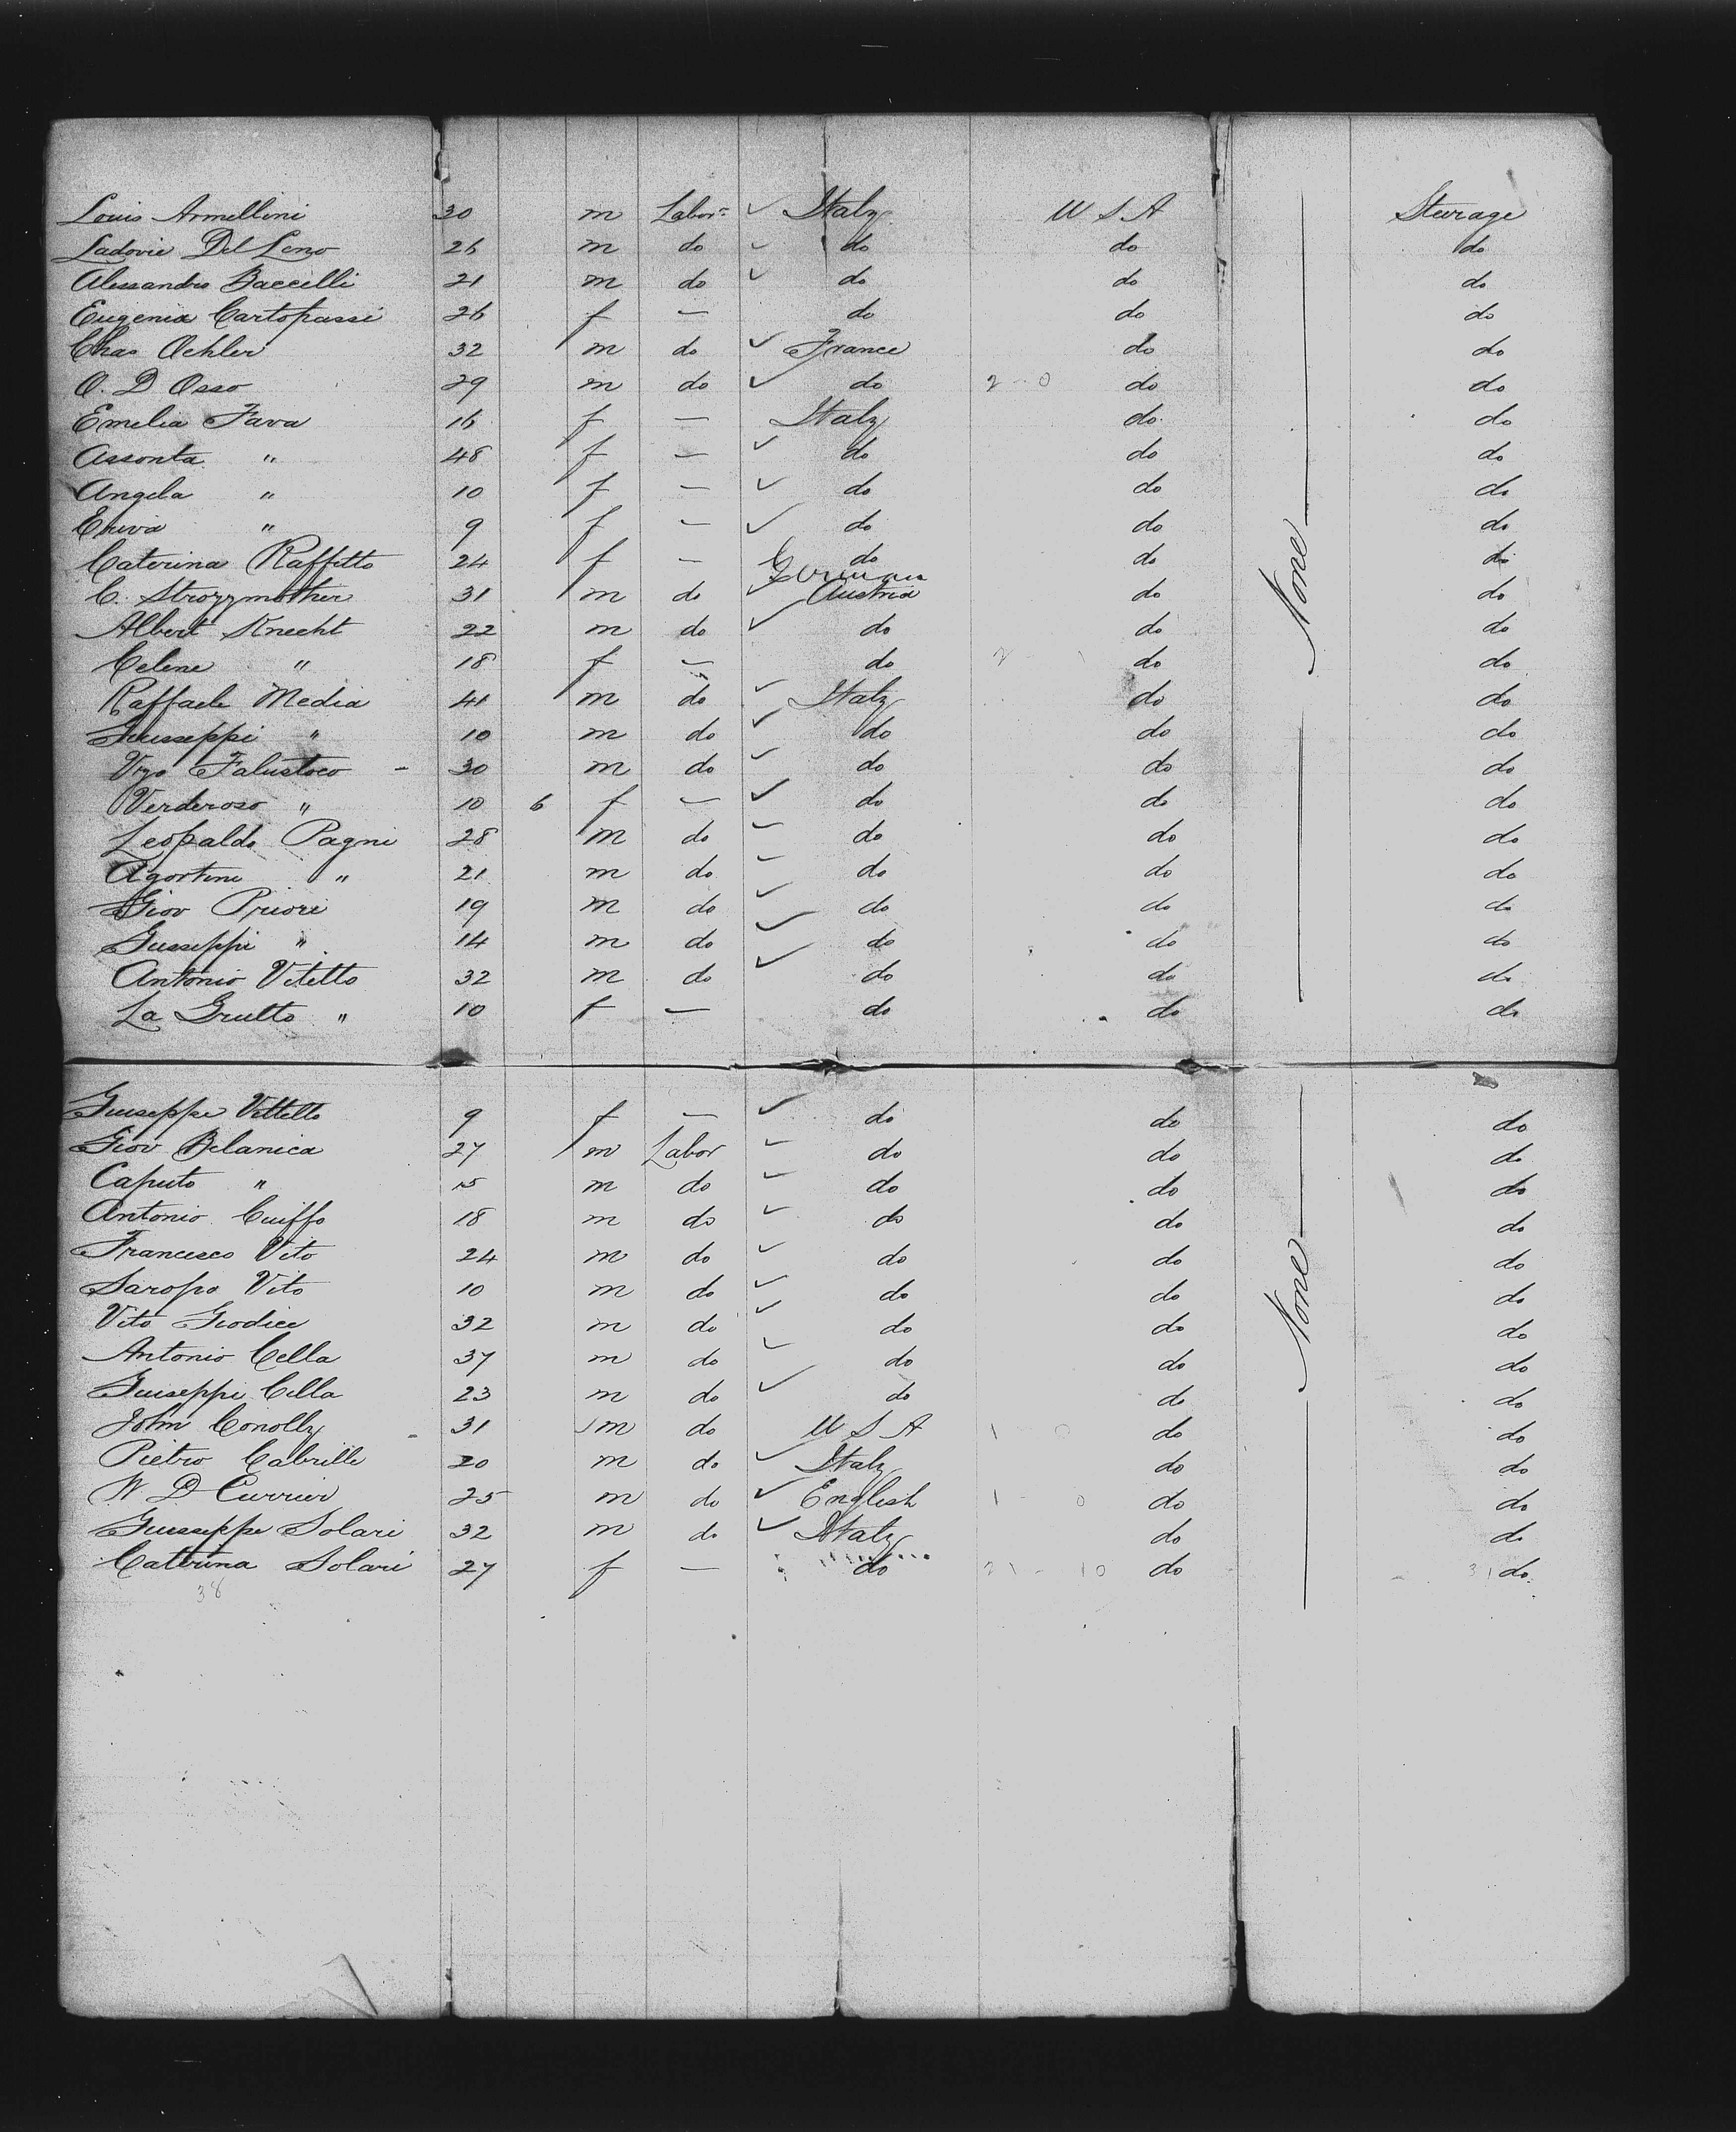 Louis Armellini 30 m Labor Italy U S A Sturage
Ladovie Del Leno 26 m do do do do
Alessandro Baccelli 21 m do do do do
Eugenia Cartopassi 26 f — do do do
Chas Oehler 32 m do France do do
O. D Osso 29 m do do 2 - 0 do do
Emelia Fava 16 f — Italy do do
Assonta " 48 f — do do do
Angela " 10 f — do do do
" 9 f — do do do
Caterina Raffetto 24 f — do do do
German
C. Strozzmother 31 m do Austria do do
Albert Knecht 22 m do do do do
Celene " 18 f — do do do
Raffaele Media 41 m do Italy do do
Guiseppi " 10 m do do do do
Vigo Falustoco - 30 m do do do do
Verderoso " 10 6 f — do do do
Leopaldo Pagni 28 m do do do do
Agortini " 21 m do do do do
Giov Priori 19 m do do do do
Gusseppi " 14 m do do do do
Antonio Vitetto 32 m do do do do
La Grutto " 10 f — do do do
None
Guiseppe Vittetto 9 f — do do do
Giov Belanica 27 m Labor do do do
Caputo " 15 m do do do do
Antonio Cuiffo 18 m do do do do
Francesco Vito 24 m do do do do
Saropo Vito 10 m do do do do
Vito Giodice 32 m do do do do
Antonio Cella 37 m do do do do
Guiseppi Cella 23 m do do do do
John Conolly 31 m do U S A 1 0 do do
Pietro Cabrille 20 m do Italy do do
W D Currier 25 m do English 1 - 0 do do
Guisseppe Solari 32 m do Italy do do
Caterina Solari 27 f — do 21 - 10 do 31 do
38
None